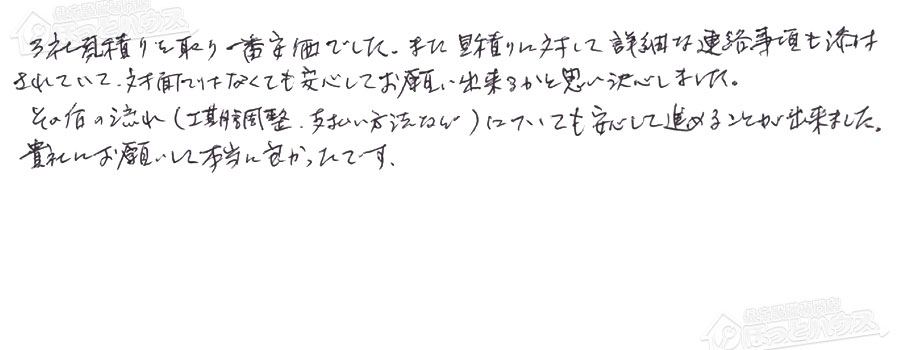 住宅設備専門店
ほっとハウス
3社見積りを取り一番安価でした。また見積りに対して詳細な連絡事項も添付
されていて、対面ではなくても安心してお願い出来るかと思い決心しました。
その后の流れ(工期調整、支払い方法など)についても安心して進めることが出来ました。
貴社にお願いして本当に良かったです、
住宅設備専門店
ほっとハウス